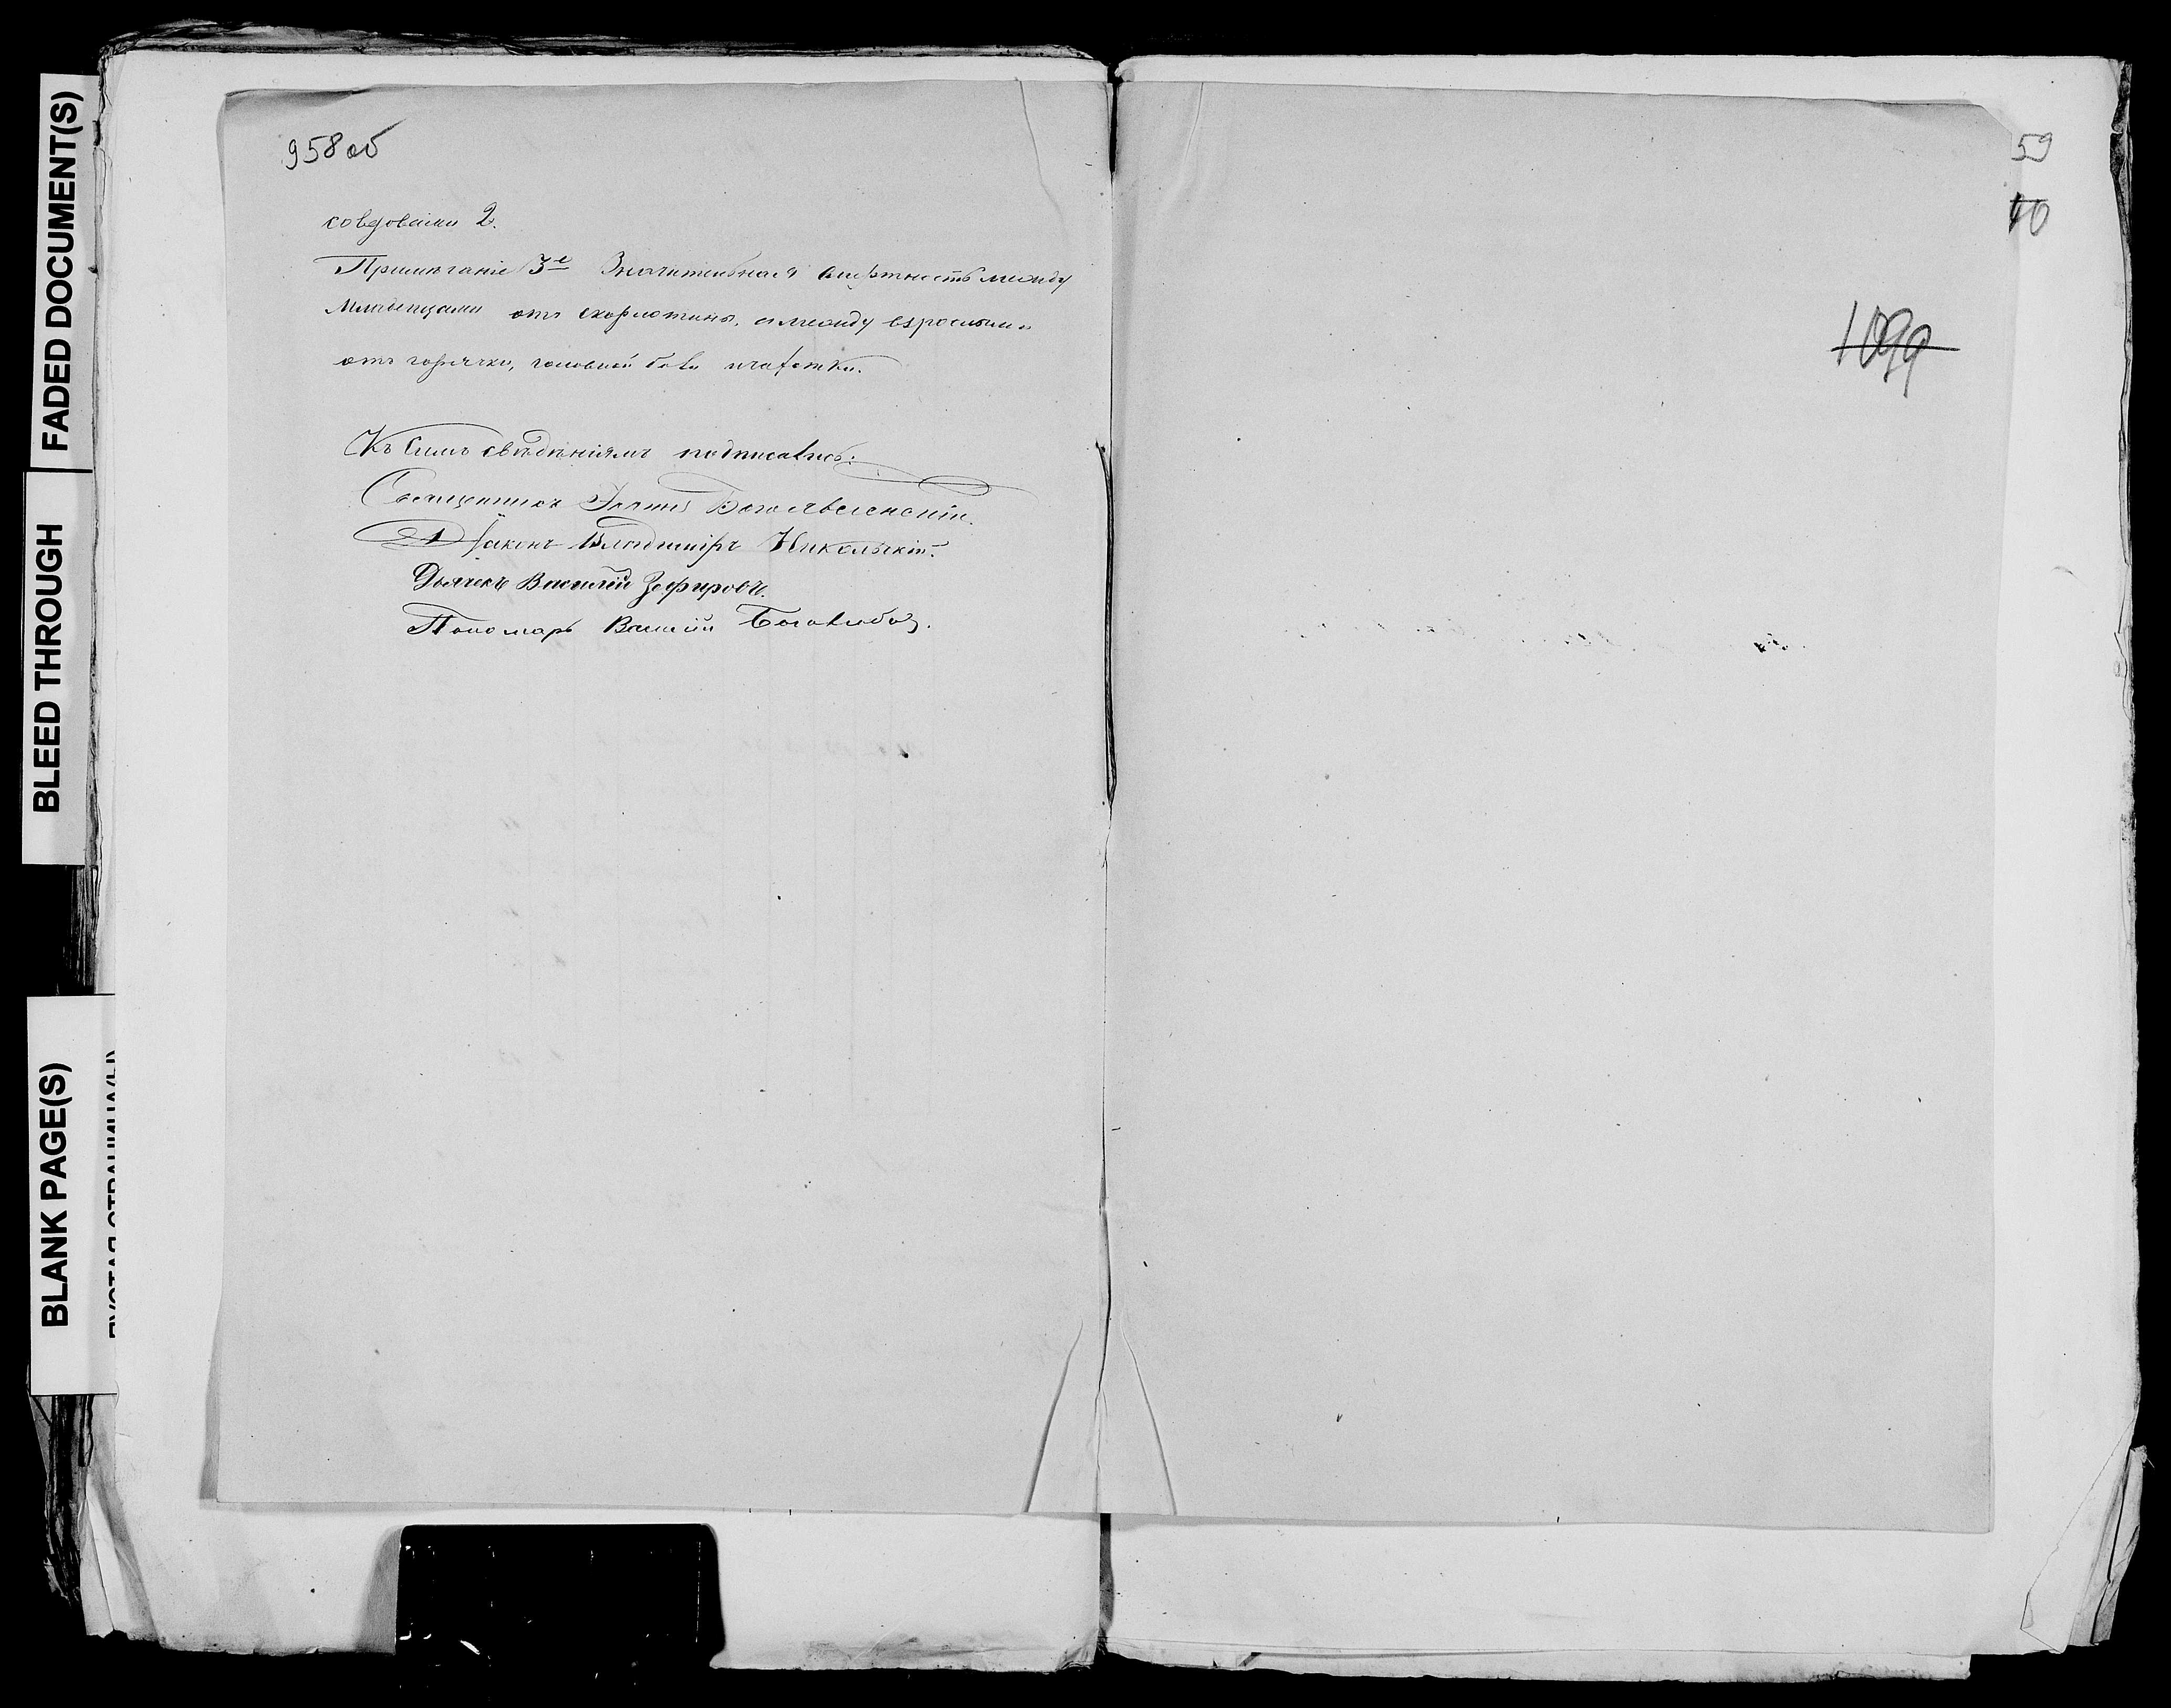 FADED DOCUMENT(S)
BLEED THROUGH
BLANK PAGE(S)
958 об
со вдовами 2.
Примѣчаніе 3е Значительная смертность между
младенцами отъ скорлотины, а между взрослыми
отъ горячки, головной боли и чахотки.
Къ симъ свѣдѣніямъ подписались:
Священникъ Іоаннъ Богоявленскій.
Діаконъ Владиміръ Никольскій.
Дьячекъ Василій Зефировъ.
Пономарь Василій
59
10
1099